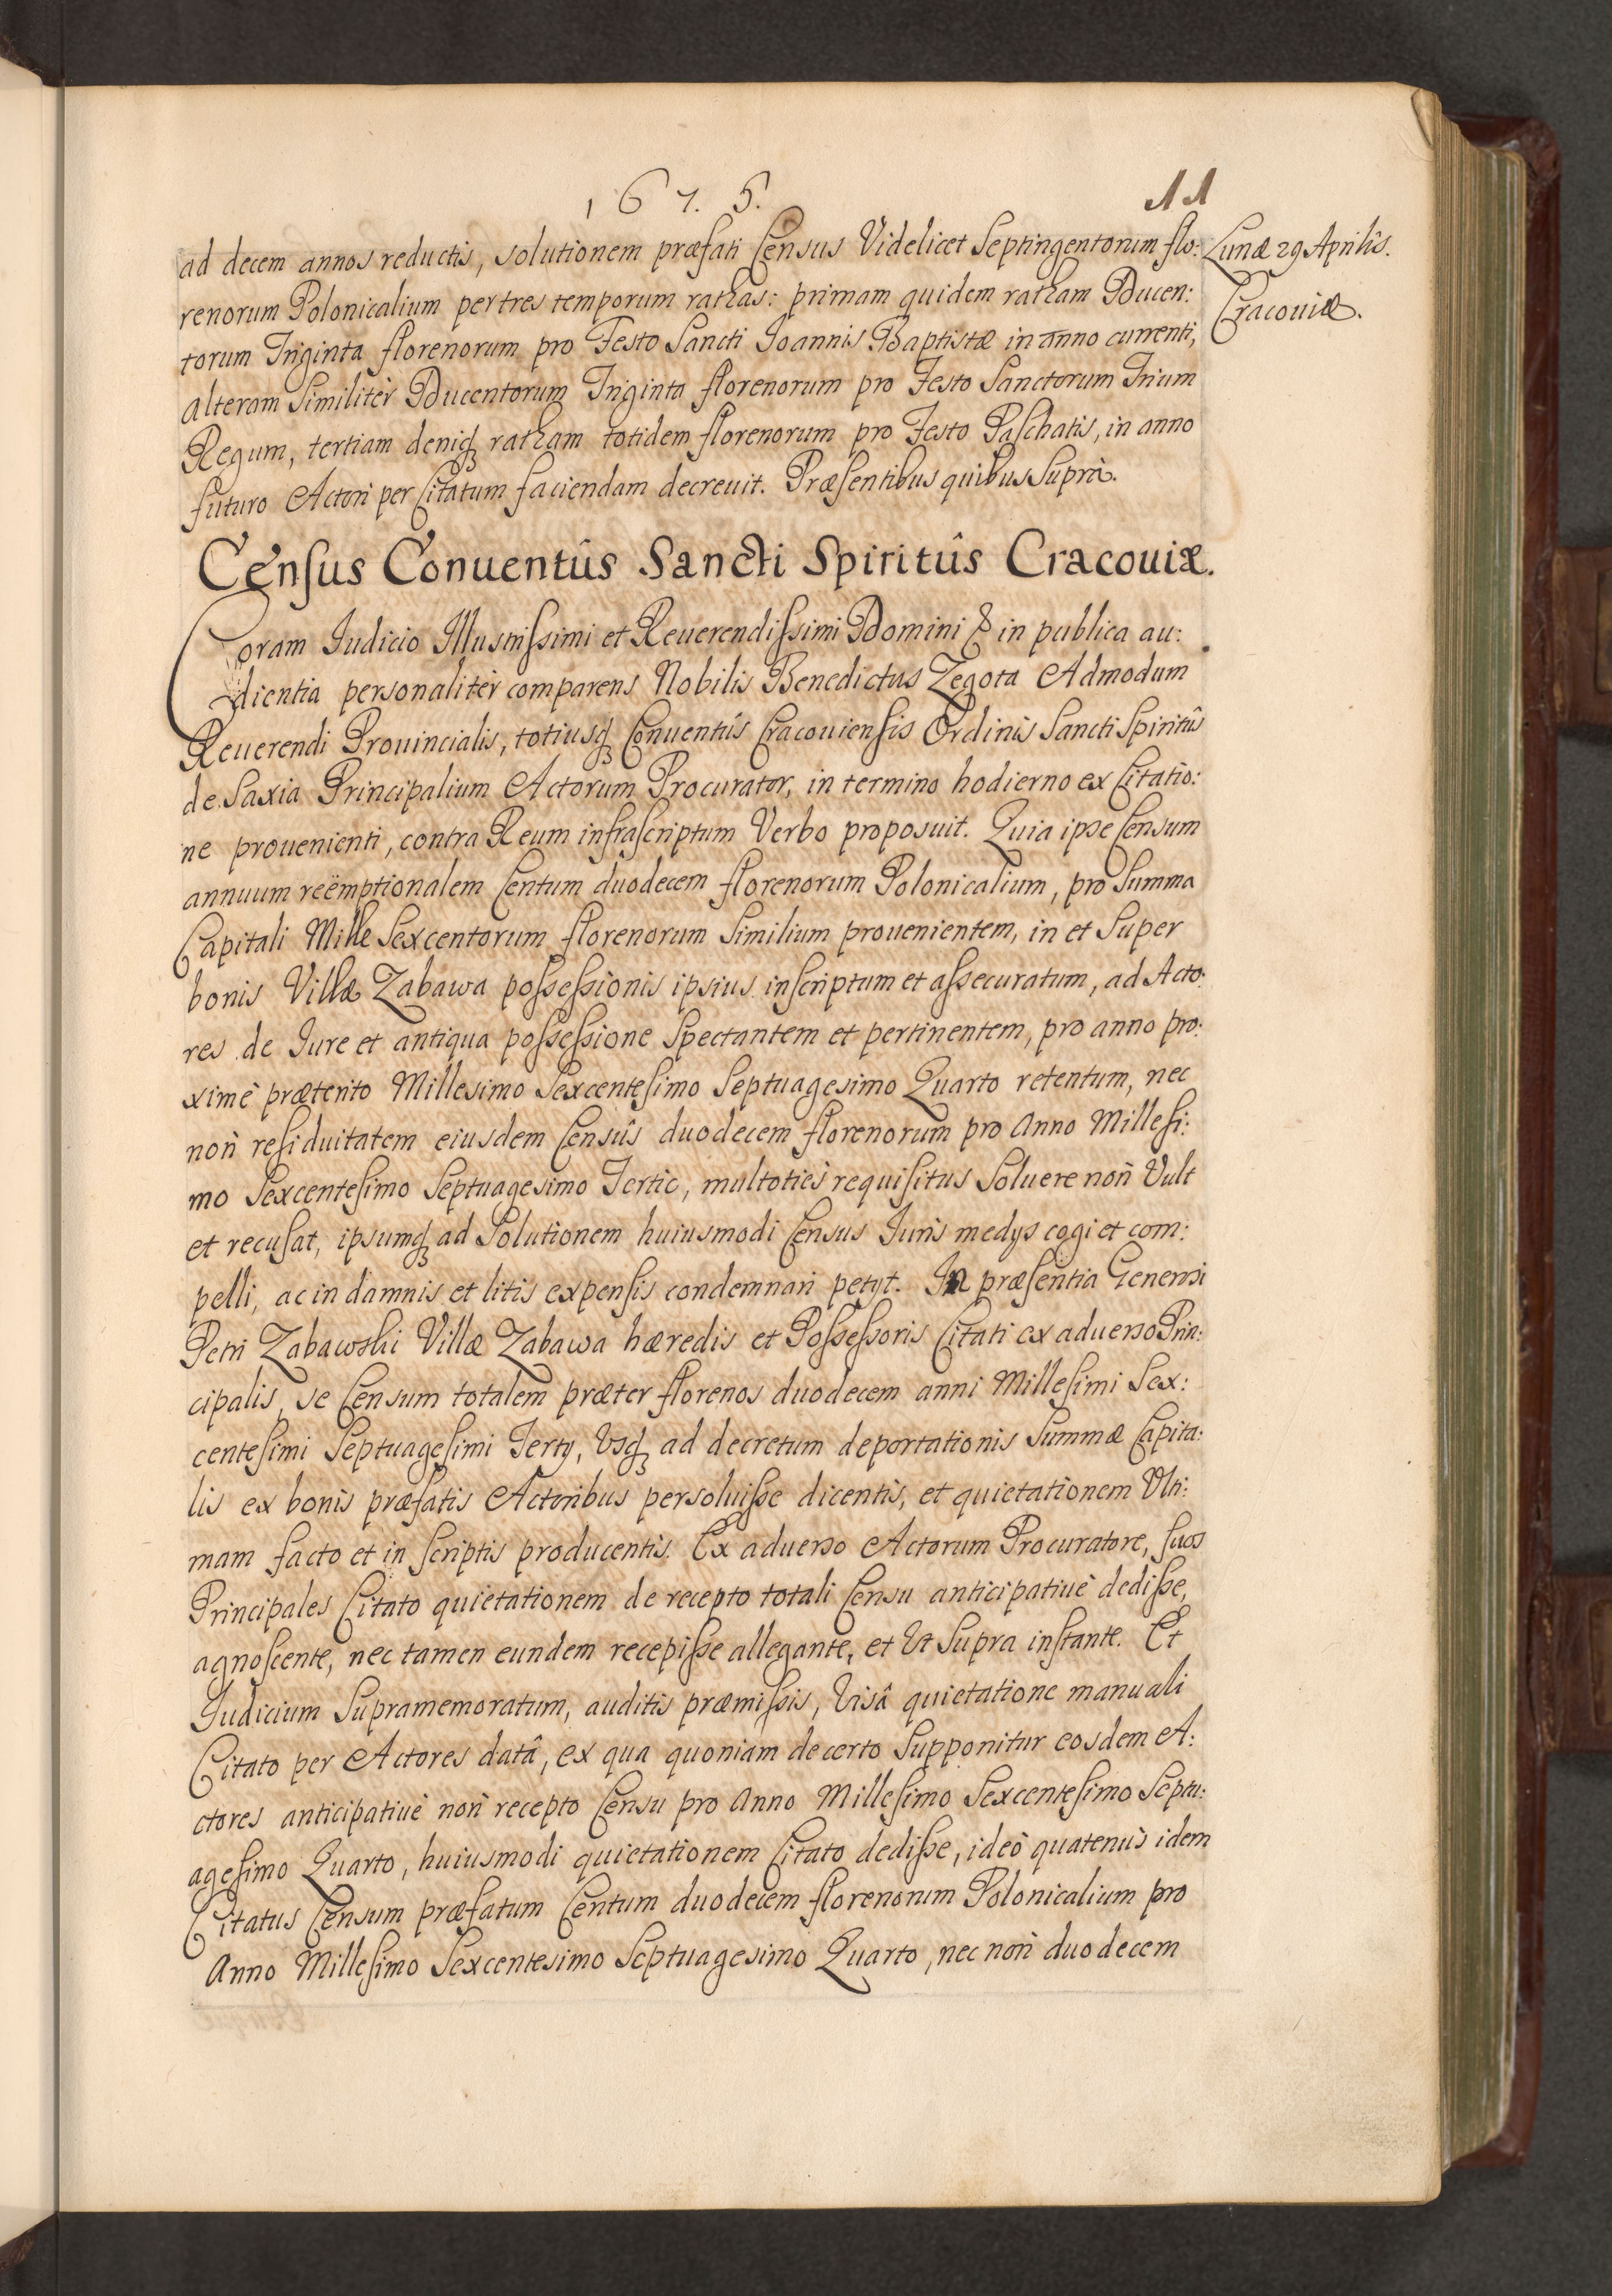 1675.
11
Lunæ 29 Aprilis.
Cracouiæ.
ad decem annos reductis, solutionem præfati Census Videlicet Septingentorum flo:
renorum Polonicalium per tres temporum rathas: primam quidem ratham Ducen:
torum Triginta florenorum pro Festo Sancti Ioannis Baptistæ in anno currenti,
alteram Similiter Ducentorum Triginta florenorum pro Festo Sanctorum Trium
Regum, tertiam deniqꝫ ratham totidem florenorum pro Festo Paschatis, in anno
futuro Actori per Citatum faciendam decreuit. Præsentibus quibus Suprà.
Census Conuentûs Sancti Spiritûs Cracouiæ.
Coram Iudicio Illustrissimi et Reuerendissimi Domini & in publica au:
dientia personalitèr comparens Nobilis Benedictus Zegota Admodum
Reuerendi Prouincialis, totiusqꝫ Conuentûs Cracouiensis Ordinis Sancti Spiritûs
de Saxia Principalium Actorum Procurator, in termino hodierno ex Citatio:
ne prouenienti, contra Reum infrascriptum Verbo proposuit. Quia ipse Censum
annuum reëmptionalem Centum duodecem florenorum Polonicalium, pro Summa
Capitali Mille Sexcentorum florenorum Similium prouenientem, in et Super
bonis Villæ Zabawa possessionis ipsius inscriptum et assecuratum, ad Acto:
res de Iure et antiqua possessione Spectantem et pertinentem, pro anno pro:
ximè præterito Millesimo Sexcentesimo Septuagesimo Quarto retentum, nec
non residuitatem eiusdem Censûs duodecem florenorum pro Anno Millesi:
mo Sexcentesimo Septuagesimo Tertio, multotiès requisitus Soluere non Vult
et recusat, ipsumqꝫ ad Solutionem huiusmodi Census Iuris medys cogi et com:
pelli, ac in damnis et litis expensis condemnari petyt. In præsentia Generosi
Petri Zabawski Villæ Zabawa hæredis et Possessoris Citati ex aduerso Prin:
cipalis, se Censum totalem præter florenos duodecem anni Millesimi Sex:
centesimi Septuagesimi Terty, Vsqꝫ ad decretum deportationis Summæ Capita:
lis ex bonis præfatis Actoribus persoluisse dicentis, et quietationem Vlti:
mam facto et in scriptis producentis. Ex aduerso Actorum Procuratore, suos
Principales Citato quietationem de recepto totali Censu anticipatiuè dedisse,
agnoscente, nec tamen eundem recepisse allegante, et Vt Supra instante. Et
Iudicium Supramemoratum, auditis præmissis, Visâ quietatione manuali
Citato per Actores datâ, ex qua quoniam de certo Supponitur eosdem A:
ctores anticipatiuè non recepto Censu pro Anno Millesimo Sexcentesimo Septu:
agesimo Quarto, huiusmodi quietationem Citato dedisse, ideò quatenùs idem
Citatus Censum præfatum Centum duodecem florenorum Polonicalium pro
Anno Millesimo Sexcentesimo Septuagesimo Quarto, nec non duodecem